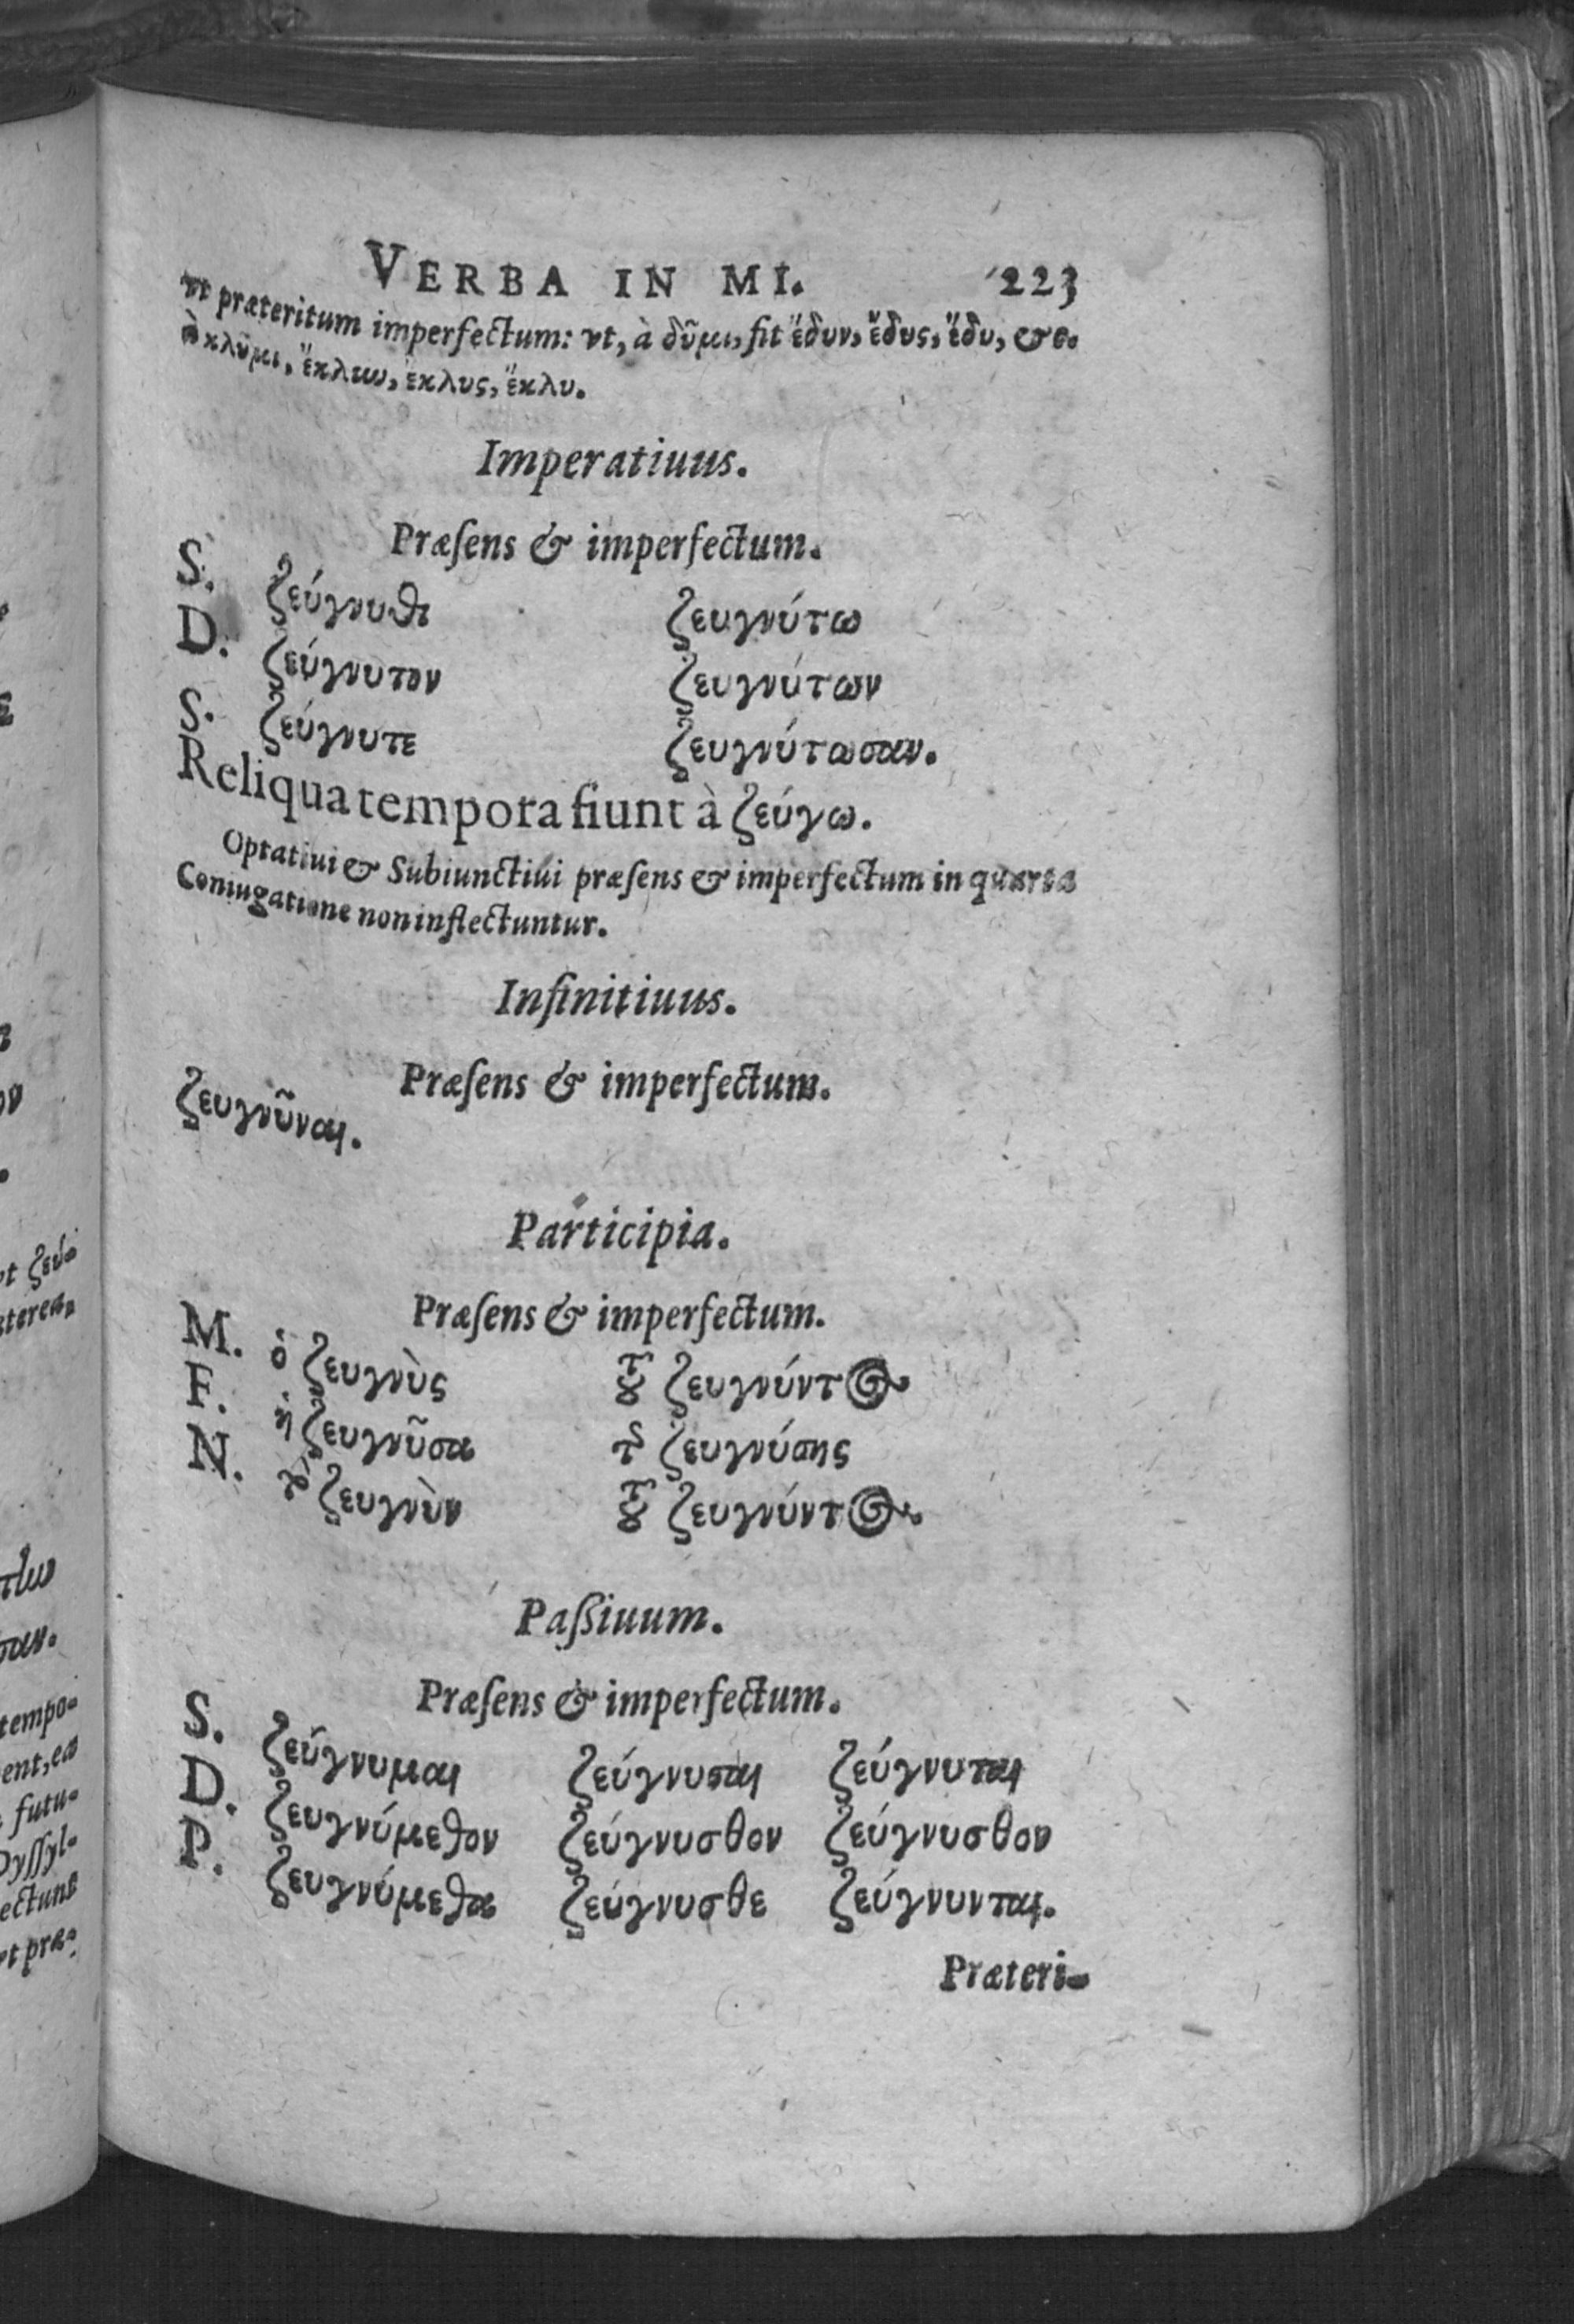 VERBA IN MI. 223
vt præteritum imperfectum: vt, à δῦμι, fit ἔδυν, ἔδυς, ἔδυ, &c.
à κλῦμι, ἔκλυν, ἔκλυς, ἔκλυ.
Imperatiuus.
Præsens & imperfectum.
S. ζεύγνυθι ζευγνύτω
D. ζεύγνυτον ζευγνύτων
S. ζεύγνυτε ζευγνύτωσαν.
Reliqua tempora fiunt à ζεύγω.
Optatiui & Subiunctiui præsens & imperfectum in quarta
Coniugatione non inflectuntur.
Infinitiuus.
Præsens & imperfectum.
ζευγνῦναι.
Participia.
Præsens & imperfectum.
M. ὁ ζευγνὺς τοῦ ζευγνύντος
F. ἡ ζευγνῦσα τῆς ζευγνύσης
N. τὸ ζευγνὺν τοῦ ζευγνύντος.
Paßiuum.
Præsens & imperfectum.
S. ζεύγνυμαι ζεύγνυσαι ζεύγνυται
D. ζευγνύμεθον ζεύγνυσθον ζεύγνυσθον
P. ζευγνύμεθα ζεύγνυσθε ζεύγνυνται.
Præteri-